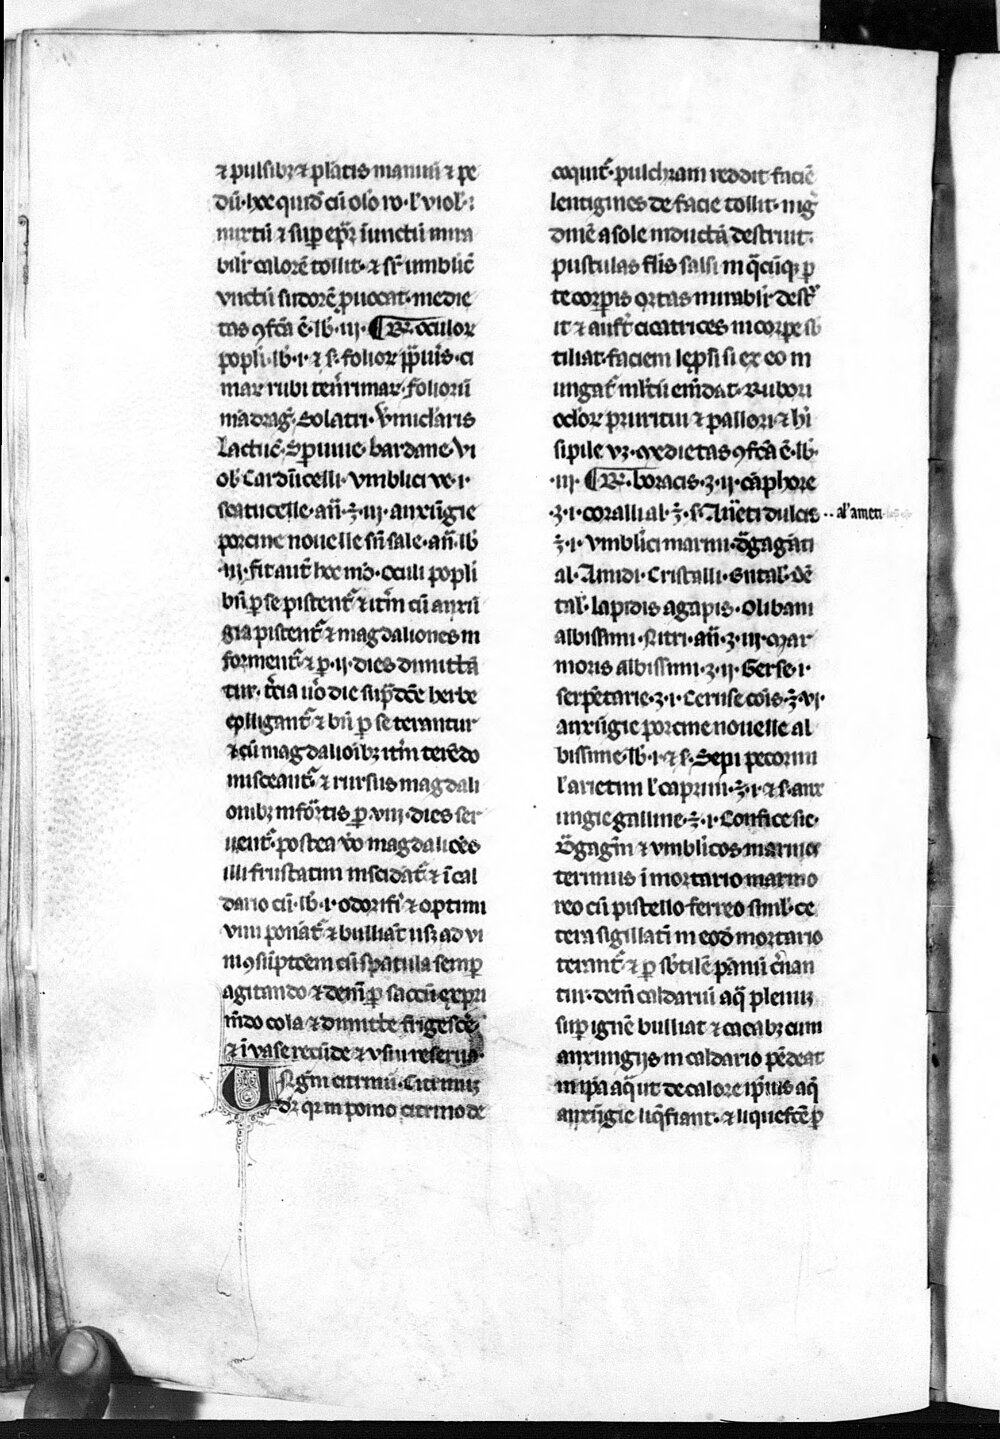 ⁊ pulsibꝫ ⁊ plātis manuū ⁊ pe
dū· hoc quidē cū oló ro· ł viol· ı
mirtū ⁊ sup epr̄ ıunctū mira
bilr̄ calorē tollit· ⁊ sr̄ umblic̄
vnctū sudorē ꝓuocat· medie
tas ꝯfcā ē· lb̄· iij· ¶ R̄. oculoꝝ
popli· lb̄· i· ⁊ s̄· folioꝝ ipiuis· ci
maꝝ rubi ten̄rimaꝝ· folioꝝ
mādrag̃· Solatri· v̄miclaris
Lactuc̄· Sp̄uiue· bardane· vi
ol· Carduncelli· vmblici ve· ı·
scatucelle· añ· ℥· iij· anxūgie
porcine nouelle sn̄ sale· añ· lb̄
iij· fit aut̄ hoc mō· oculi popli
bn̄ ꝑ se pistent̄ ⁊ itm̄ cū anxū
gia pistent̄ ⁊ magdaliones in
forment̄ ⁊ ꝑ· ij· dies dimittā
tur· t̄cia uō die sup̄dc̄e herbe
cꝑlligant̄ ⁊ bn̄ ꝑ se terantur
⁊ cū magdalioībꝫ itm̄ terēdo
misceant̄ ⁊ rursus magdali
onibꝫ infōr̄tis ꝑ· viij· dies ser
uent̄· postea v̄o magdalioēs
illi frustatim inscidāt̄ ⁊ ī cal
dario cū· lb̄· i· odorifi ⁊ optimi
vini ponāt̄ ⁊ bulliāt usꝫ ad vi
ni ꝯsūptōem cū spatula semꝑ
agitando ⁊ dein̄ ꝑ saccū expri
mēdo cola ⁊ dimitte frigescē
⁊ ī vase recūde ⁊ vsui reserua·
Vngm̄ citrinū· Citrinuꝫ
dr̄ qꝛ in pomo citrino de
coquit̄· pulchram reddit faciē
lentigines de facie tollit· nig̃
dinē a sole inductā destruit·
pustulas flis salsi in q̄cūqꝫ ꝑ
te corpis ortas mirabilr̄ destr̄
it ⁊ aufert̄ cicatrices in corpe sb̄
tiliat· faciem lepsi si ex eo in
ungat̄ mltū emēdat· Rubori
oclōꝝ pruritui ⁊ pallori ⁊ hi
sipile vꝫ· medietas ꝯfcā ē· lb̄·
iij· ¶ R̄. boracis· ʒ· ij· cāphore
ʒ· ı· corallı al· ℥· s̄· Am̄eti dulcis ·· al' ameti
℥· ı· vmblici marini· dragāti
al· Amidi· Cristalli· Ental· dē
tal· lapidis agapis· Olibani
albissimi· Nitri· añ· ʒ· iij· Mar
moris albissimi· ʒ· ij· Gerse· ı·
serpētarie· ʒ· ı· Ceruse cōis· ℥· vi·
anxūgie porcine nouelle al
bissime· lb̄· i· ⁊ s̄· Sepi pecorini
ł arietini ł caprini· ℥· ı· ⁊ s̄· anx
ungie galline· ℥· ı· Confice sic·
Dragagm̄ ⁊ vmblicos marinos
terimus ī mortario marmo
reo cū pistello ferreo siml̄· ce
tera sigillatī in eod̄ mortario
terant̄ ⁊ ꝑ sb̄tilē pānū cr̄nan
tur· dein̄ caldariū aq̄ plenuꝫ
sup ignē bulliat ⁊ cacabꝫ cum
anxungijs in caldario pēdeat
in ipa aq̄ ut de calore ipius aq̄
anxūgie liq̄fiant· ⁊ liquefcē ꝑ